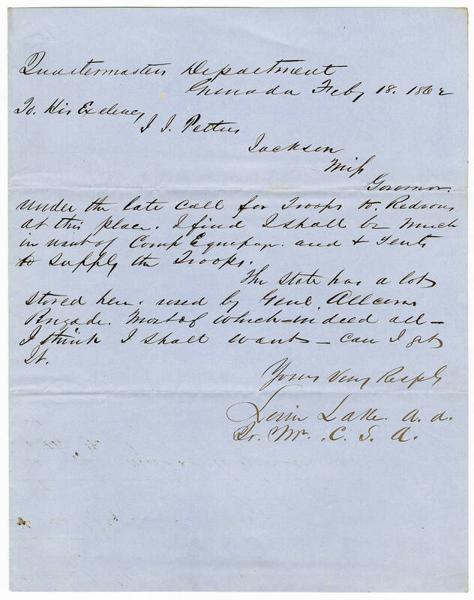 Quartermasters Department
Grenada Feby 18. 1862
To His Exclency
J J. Pettus
Jackson
Miss
Governor
under the late call for Troops to Redvous
at this place. I find I shall be much
in want of Camp Equipage. and & Tents
to supply the Troops.
The State has a lot
stored here. used by Genl. Allcorns
Brigade. Most of which indeed all -
I think I shall want - can I get
It.
Yours Very Resply
Levin Lake A. A.
Qr. Mr. C. S. A.